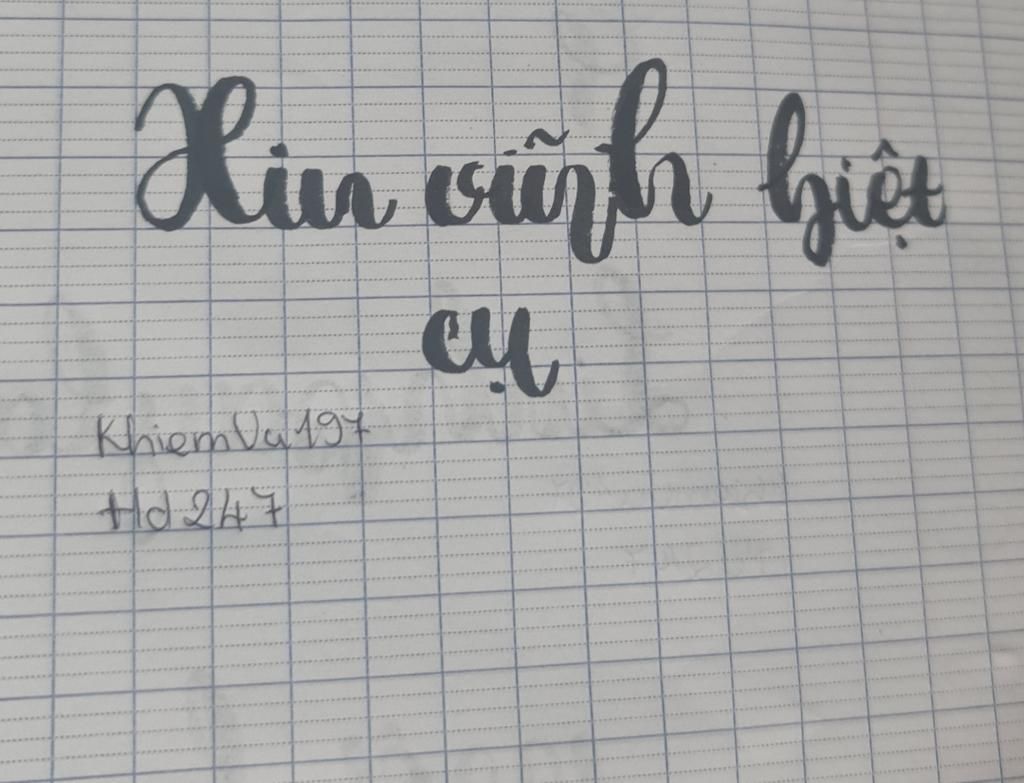 Xin vĩnh biệt
cụ
KhiemVu197
Hd247